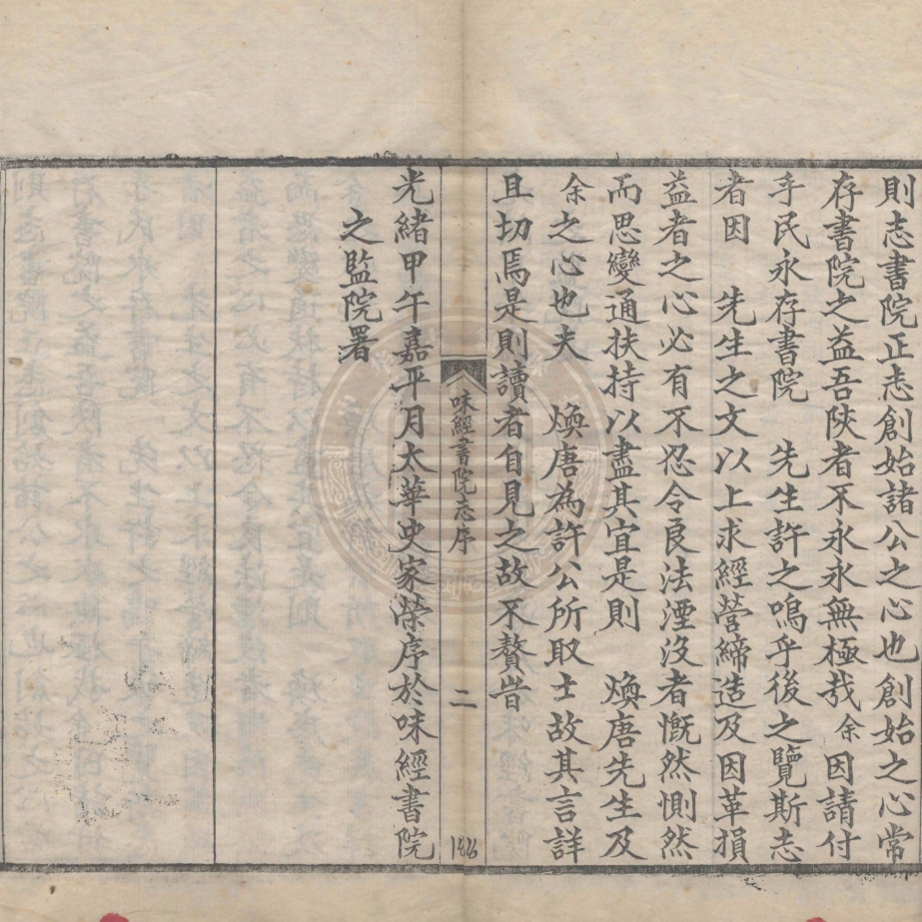 則志書院正志創始諸公之心也創始之心常
存書院之益吾陝者不永永無極哉余因請付
手民永存書院 先生許之嗚乎後之覽斯志
者因 先生之文以上求經營締造及因革損
益者之心必有不忍令良法湮沒者慨然惻然
而思變通扶持以盡其宜是則 煥唐先生及
余之心也夫 煥唐為許公所取士故其言詳
且切焉是則讀者自見之故不贅
味經書院志序
二
光緒甲午嘉平月太華史家榮序於味經書院
之監院署